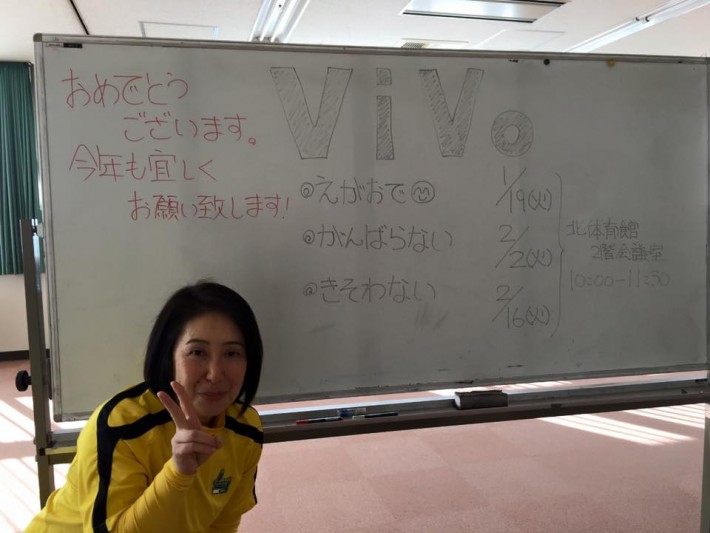 おめでとう
ございます。
今年も宜しく
お願い致します!
ViVo
◎えがおで
◎がんばらない
◎きそわない
1/19(火)
2/2(火)
2/16(火)
北体育館
2階会議室
10:00-11:30